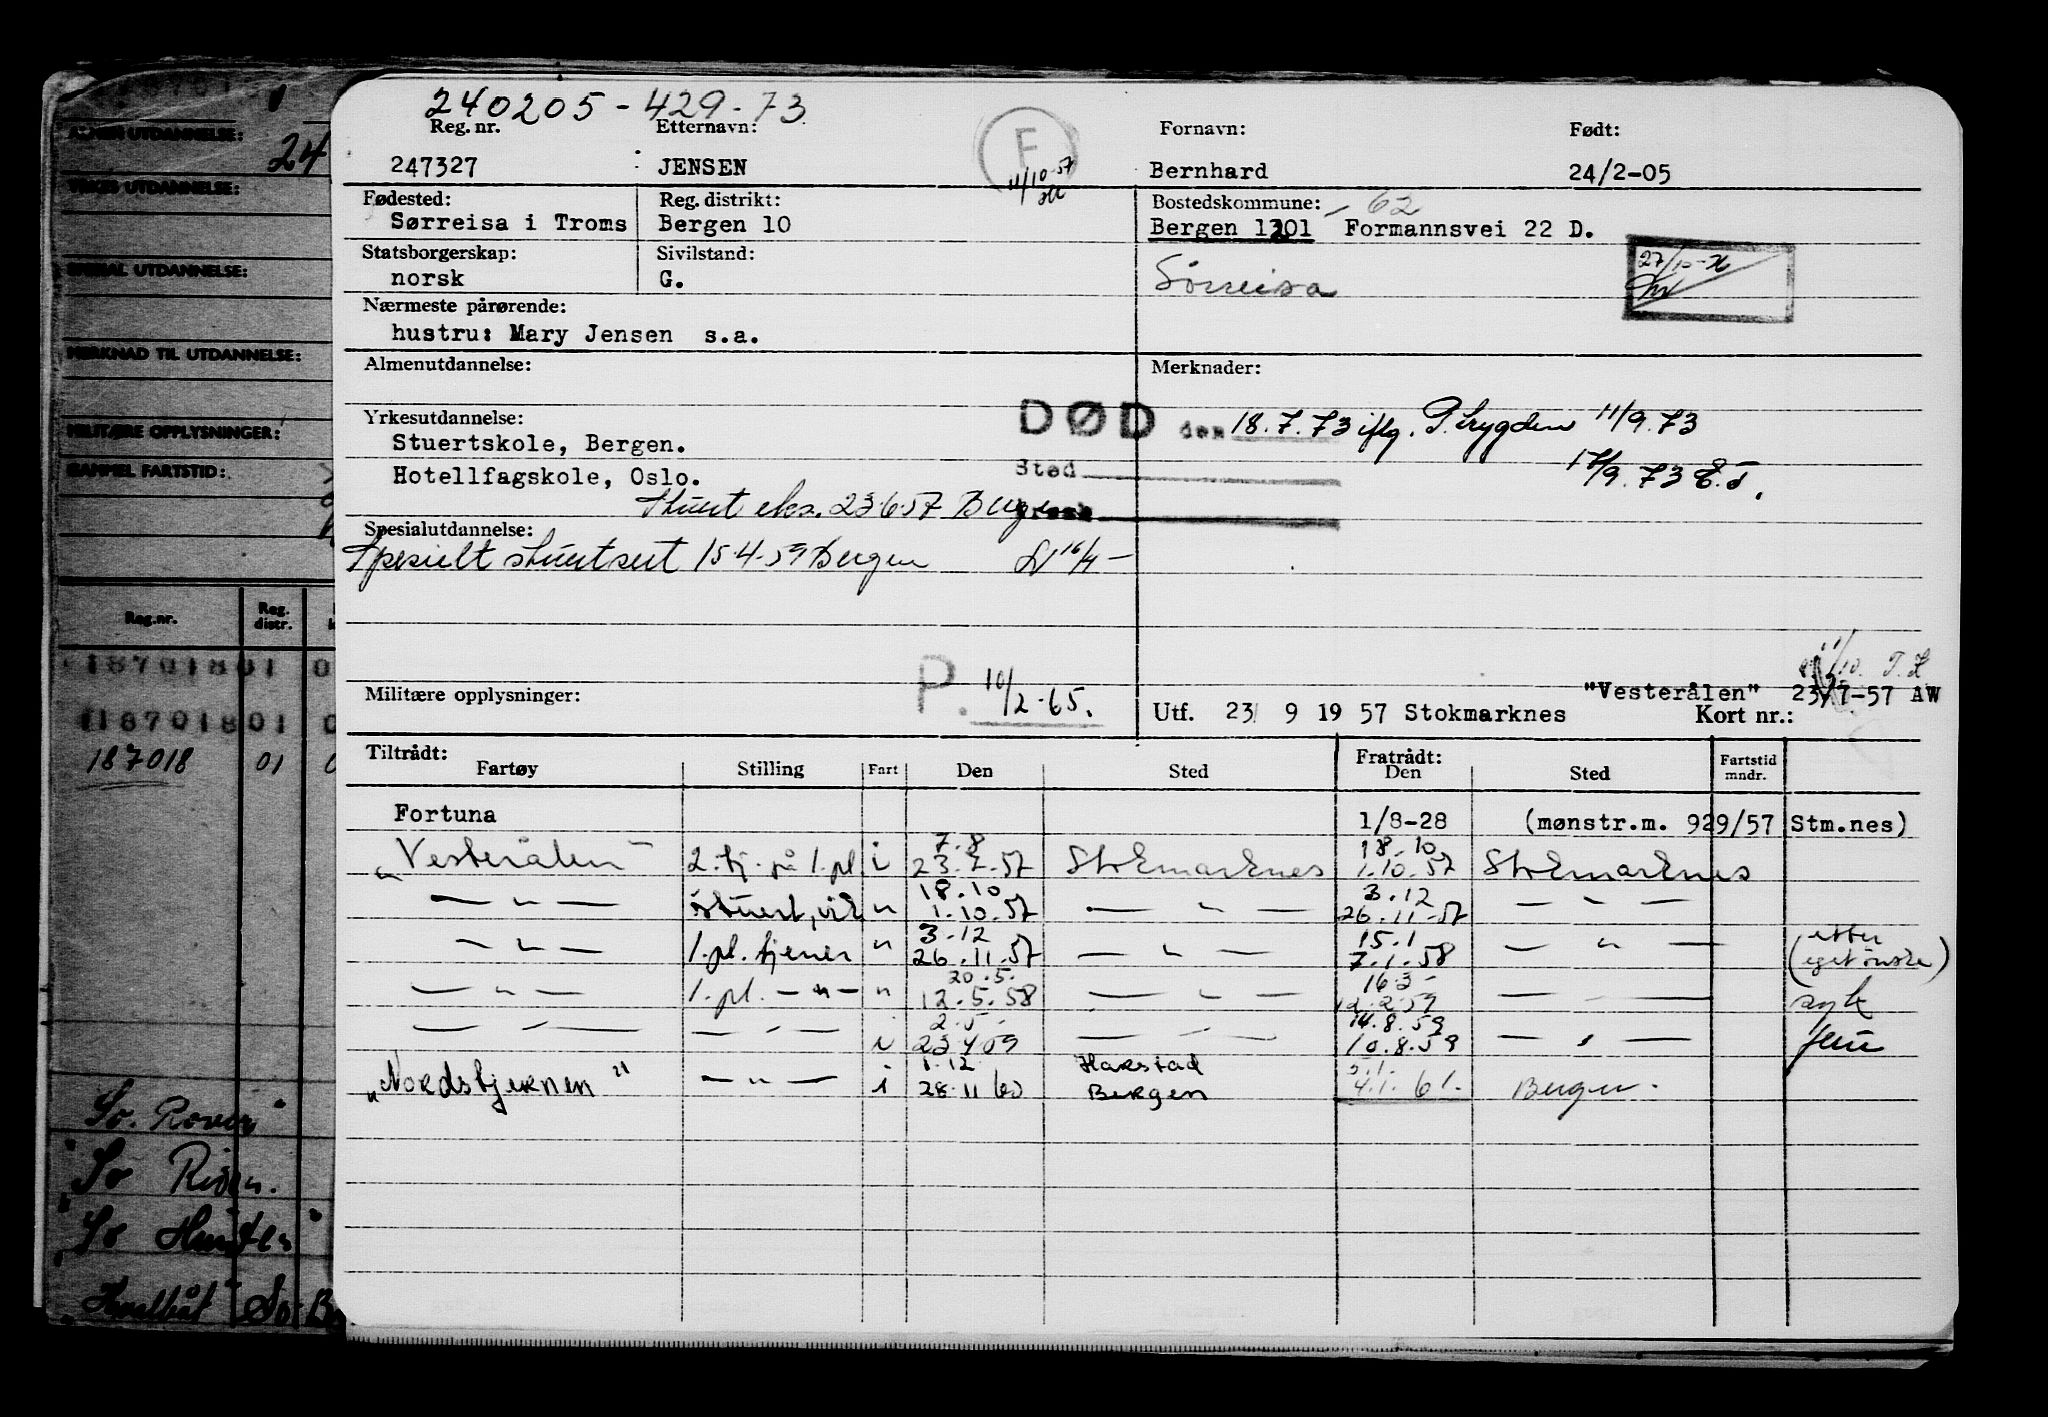 240205-429-73
Reg. nr. Etternavn: Fornavn: Født:
247327 JENSEN F Bernhard 24/2-05
11/10-57
Fødested: Reg. distrikt: Bostedskommune: 62
Sørreisa i Troms Bergen 10 Bergen 1301 Formannsvei 22 D.
Statsborgerskap: Sivilstand:
norsk G. Sørreisa
27/10-
Nærmeste pårørende:
hustru: Mary Jensen s.a.
Almenutdannelse: Merknader:
Yrkesutdannelse: DØD den 18.7.73 iflg. P.trygden 11/9.73
Stuertskole, Bergen.
Hotellfagskole, Oslo. Sted 17/9.73
Stuert eks. 23.6.57 Bergen
Spesialutdannelse:
Spesielt stuertsert 15-4-59 Bergen 16/4
Militære opplysninger: P. 10/2-65. "Vesterålen" 23/7-57 AW
Utf. 23/ 9 19 57 Stokmarknes Kort nr.:
Tiltrådt: Fratrådt:
Fartøy Stilling Fart Den Sted Den Sted Fartstid mndr.
Fortuna 1/8-28 (mønstr.m. 929/57 Stm.nes)
7.8 18.10
"Vesterålen" 2. tj. på 1. pl i 23.7.57 Stokmarknes 1.10.57 Stokmarknes
18.10 3.12
— " — stuert, vik " 1.10.57 — " — 26.11-57 — " —
3.12 15.1 etter
— " — 1. pl. tjener " 26.11.57 — " — 7.1.58 — " — (eget ønske)
20.5. 16.3
— " — 1. pl. — " — " 12.5.58 — " — 12.2.59 — syk
2.5. 14.8.59
— " — — " — i 23.4.59 — " — 10.8.59 — " —
1.12 Harstad
"Nordstjernen" — " — i 28.11 60 Bergen 4.1.61. Bergen.
ALMEN UTDANNELSE:
24
YRKES UTDANNELSE:
SPESIAL UTDANNELSE:
MERKNAD TIL UTDANNELSE:
MILITÆRE OPPLYSNINGER:
GAMMEL FARTSTID:
Reg.nr. Reg. distr.
18701801 0
18701801 0
187018 01
So. Rover"